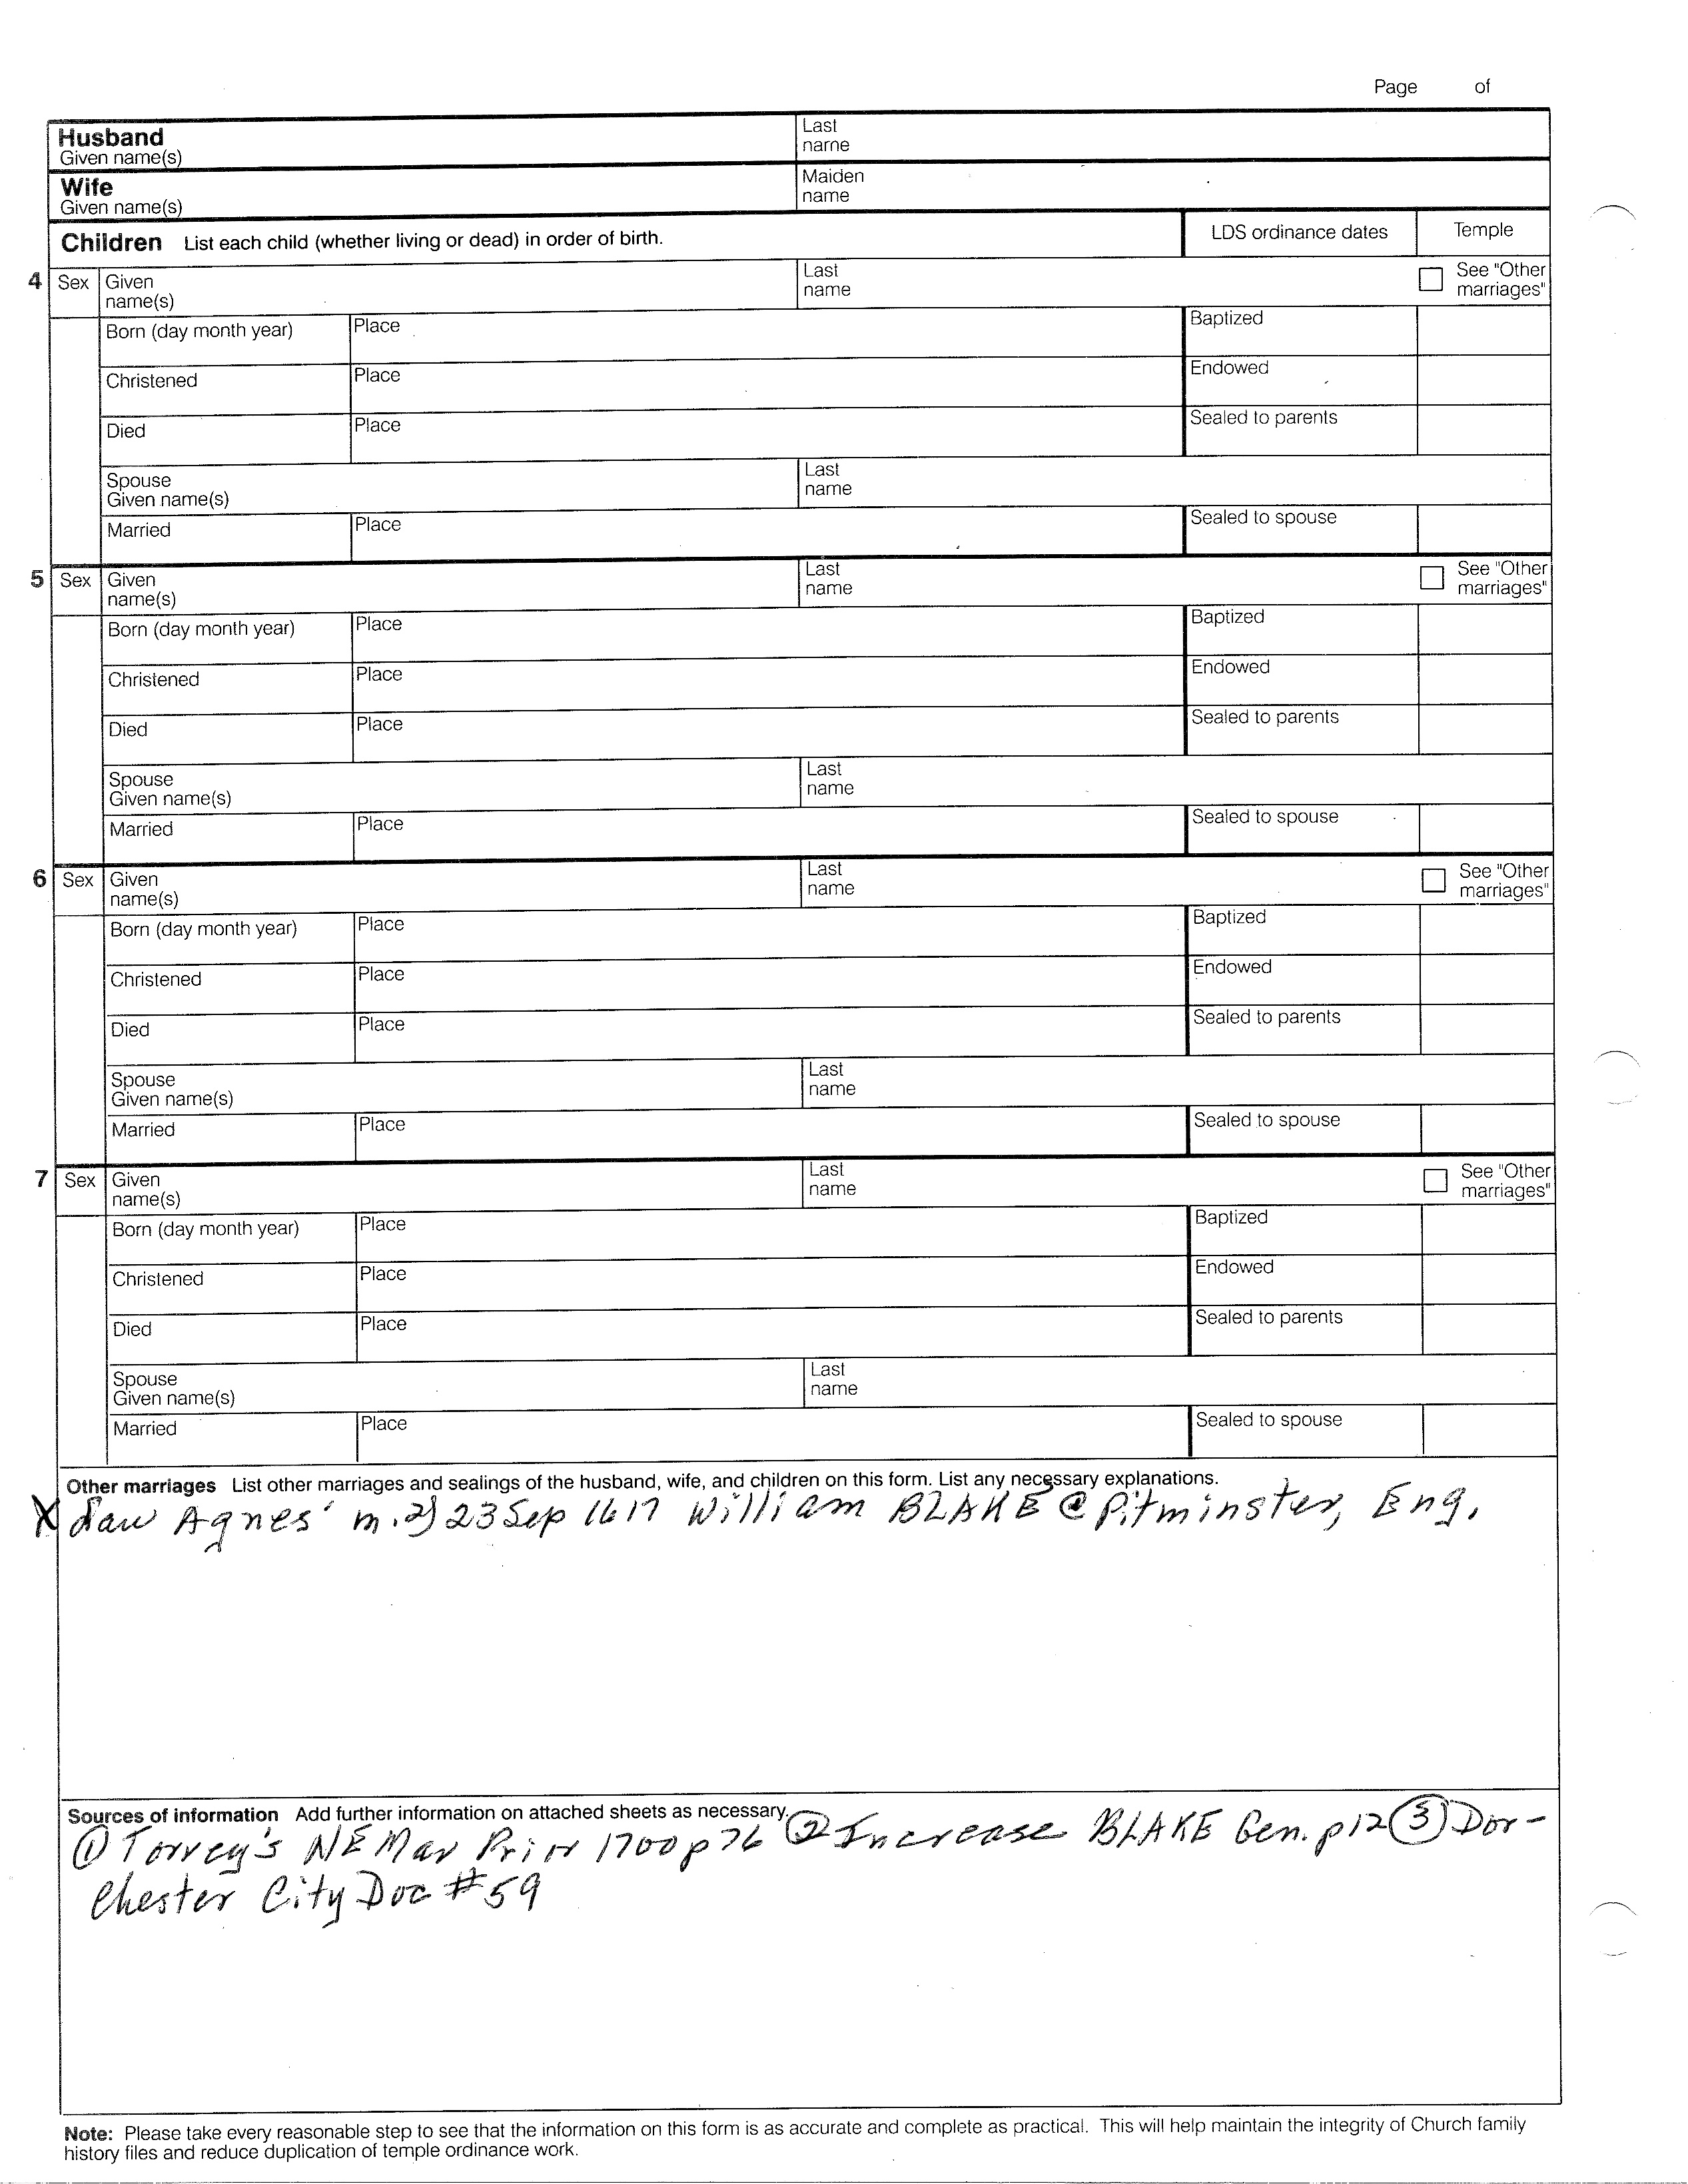 Page of
Husband
Given name(s)
Last
name
Wife
Given name(s)
Maiden
name
Children List each child (whether living or dead) in order of birth.
LDS ordinance dates
Temple
4 Sex Given
name(s)
Last
name
See "Other
marriages"
Born (day month year) Place Baptized
Christened Place Endowed
Died Place Sealed to parents
Spouse
Given name(s)
Last
name
Married Place Sealed to spouse
5 Sex Given
name(s)
Last
name
See "Other
marriages"
Born (day month year) Place Baptized
Christened Place Endowed
Died Place Sealed to parents
Spouse
Given name(s)
Last
name
Married Place Sealed to spouse
6 Sex Given
name(s)
Last
name
See "Other
marriages"
Born (day month year) Place Baptized
Christened Place Endowed
Died Place Sealed to parents
Spouse
Given name(s)
Last
name
Married Place Sealed to spouse
7 Sex Given
name(s)
Last
name
See "Other
marriages"
Born (day month year) Place Baptized
Christened Place Endowed
Died Place Sealed to parents
Spouse
Given name(s)
Last
name
Married Place Sealed to spouse
Other marriages List other marriages and sealings of the husband, wife, and children on this form. List any necessary explanations.
X Agnes' m. 2) 23 Sep 1617 William BLAKE @ Pitminster, Eng.
Sources of information Add further information on attached sheets as necessary.
① Torrey's NE Mar Prior 1700 p76 ② Increase BLAKE Gen. p12 ③ Dor-
chester City Doc #59
Note: Please take every reasonable step to see that the information on this form is as accurate and complete as practical. This will help maintain the integrity of Church family
history files and reduce duplication of temple ordinance work.